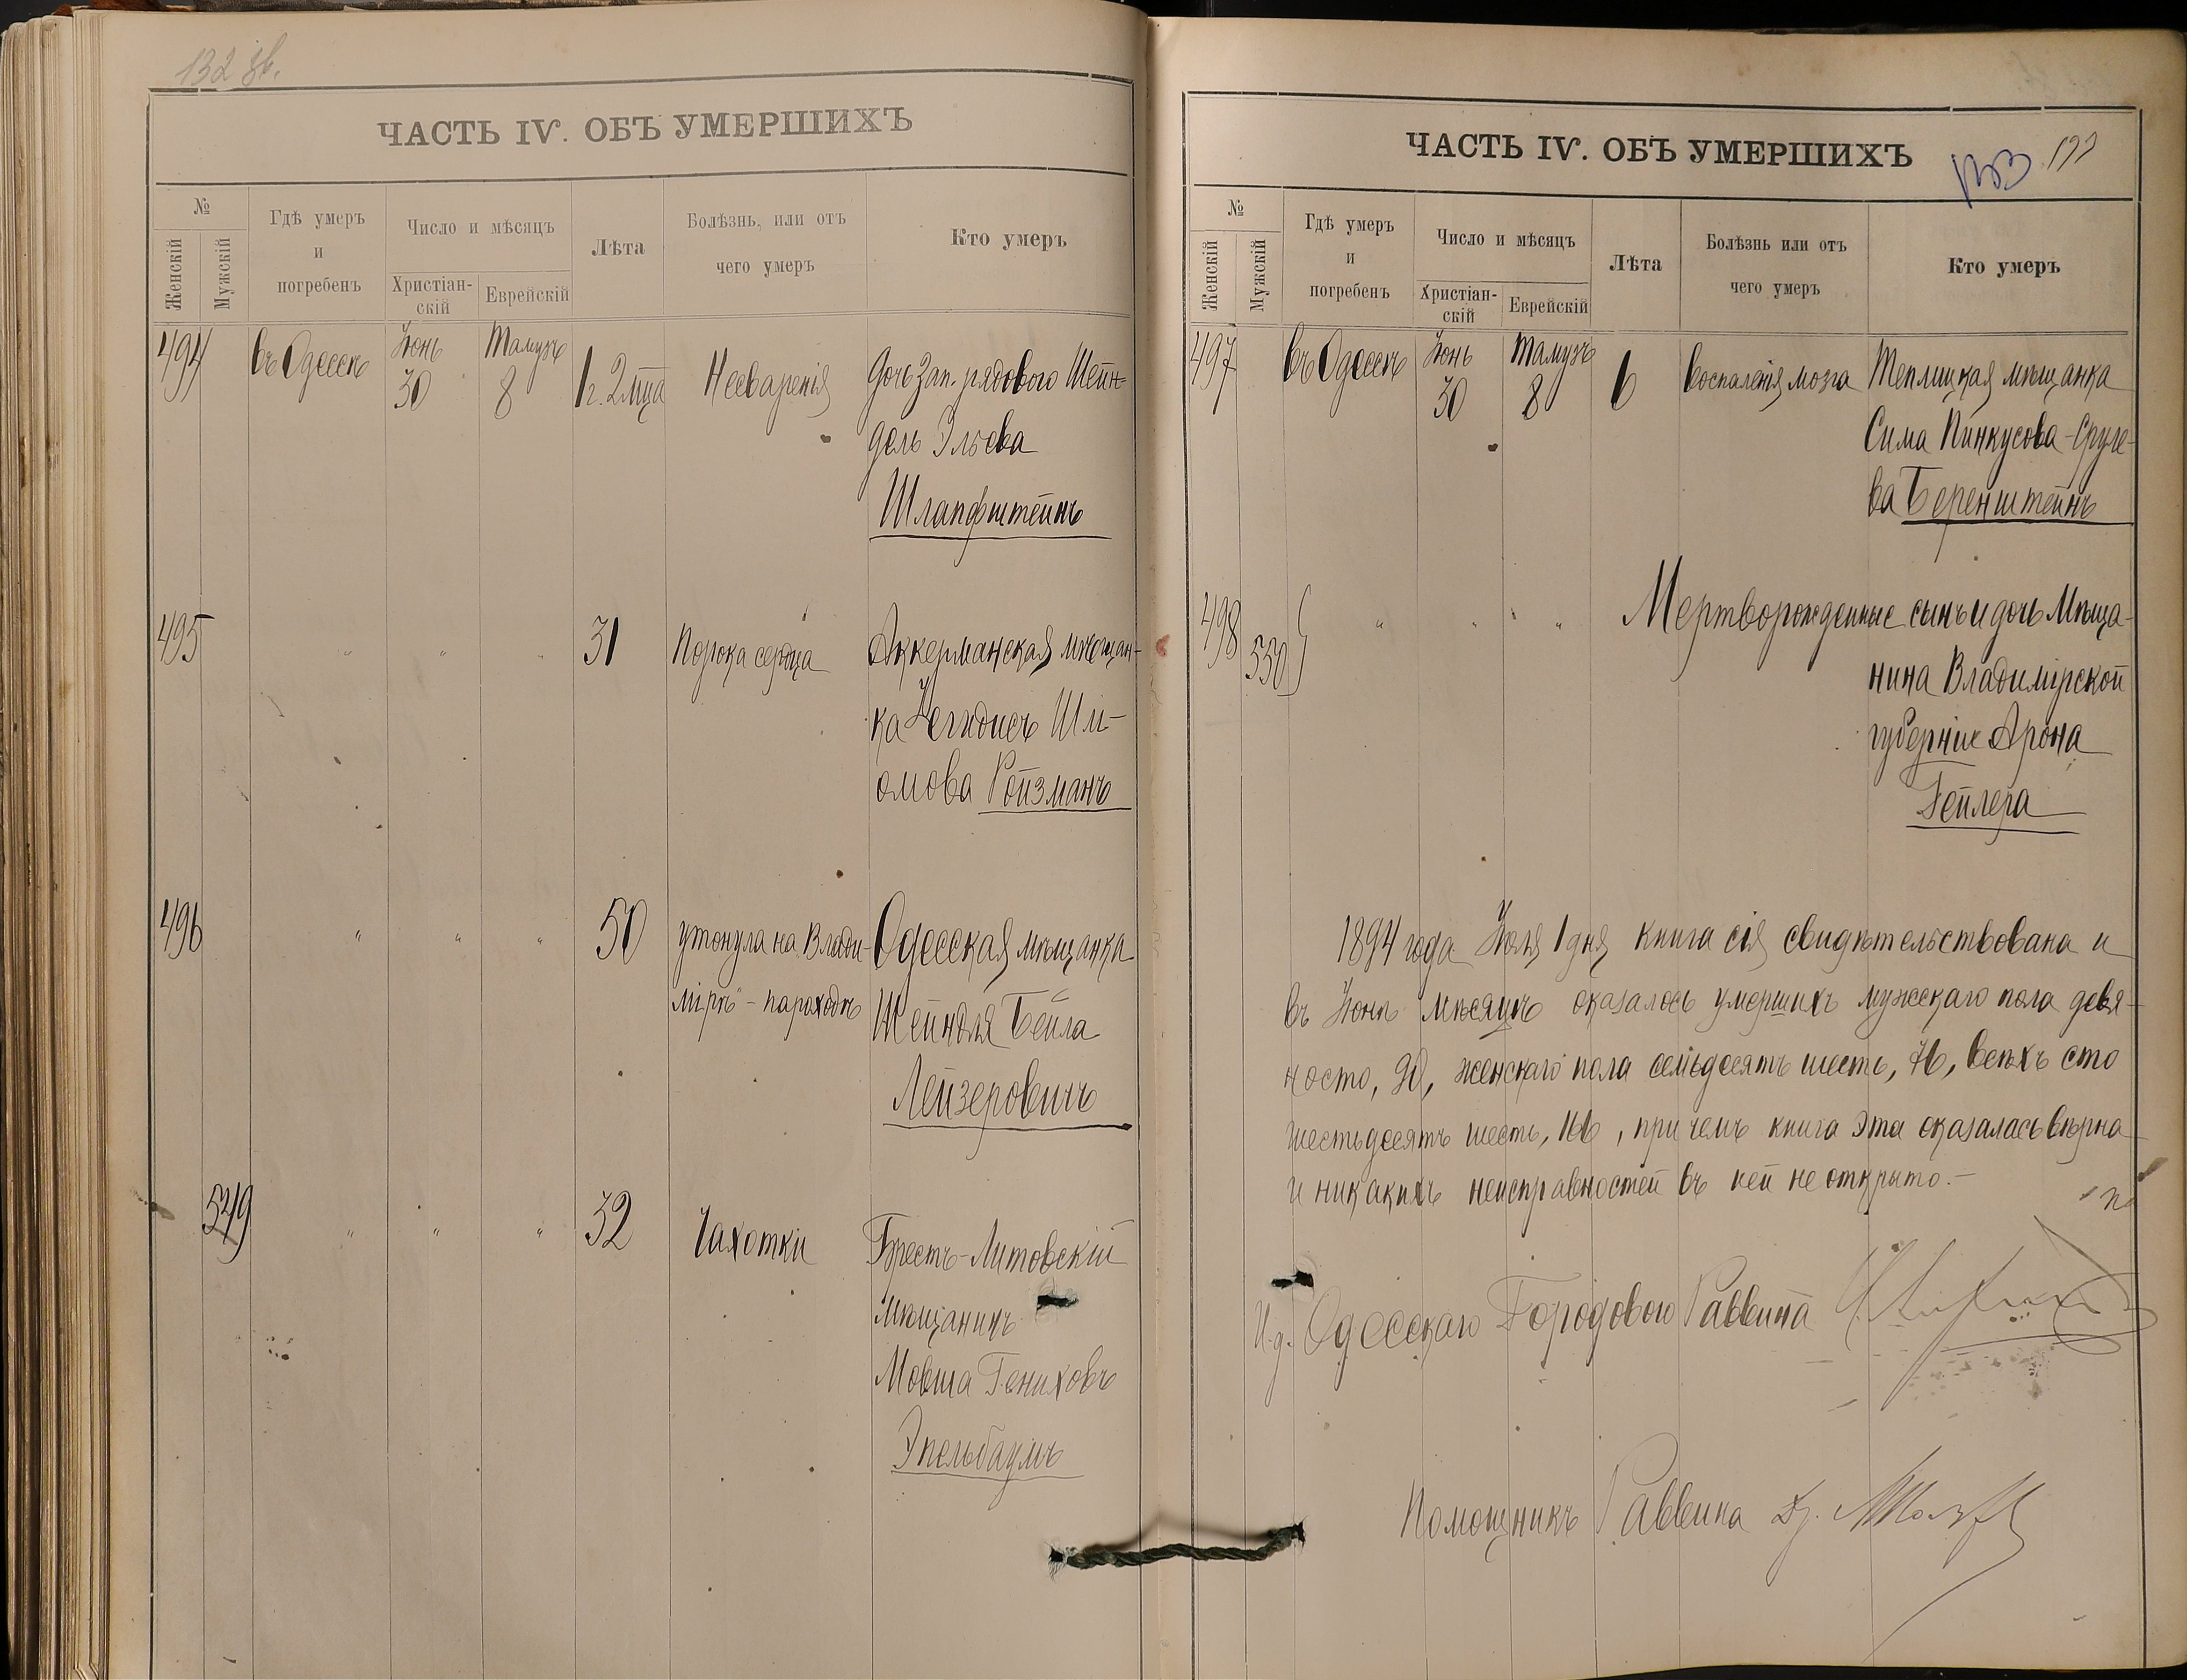 132 зв.
ЧАСТЬ IV. ОБЪ УМЕРШИХЪ
№
Женскій
Мужскій
Гдѣ умеръ
и
погребенъ
Число и мѣсяцъ
Христіан-
скій
Еврейскій
Лѣта
Болѣзнь, или отъ
чего умеръ
Кто умеръ
494 въ Одессѣ Іюнь 30 Тамузъ 8 1 г. 2 мца Несваренія Дочь Зап. рядового Шейн-
дель Эльева
Шлапфштейнъ
495 " " " 31 Порока сердца Аккерманская мѣщан-
ка Шли-
омова Ройзманъ
496 " " " 50 утонула на Влади- Одесская мѣщанка
мірѣ" - пароходѣ Шейндля Бейла
Лейзеровичъ
549 " " " 32 Чахотки Брестъ-Литовскій
мѣщанинъ
Мовша Гениховъ
Эпельбаумъ
ЧАСТЬ IV. ОБЪ УМЕРШИХЪ
133 133
№
Женскій
Мужскій
Гдѣ умеръ
и
погребенъ
Число и мѣсяцъ
Христіан-
скій
Еврейскій
Лѣта
Болѣзнь или отъ
чего умеръ
Кто умеръ
497 въ Одессѣ Іюнь 30 Тамузъ 8 6 Воспаленія мозга Теплицкая мѣщанка
Сима Пинкусова-Сруле-
ва Беренштейнъ
498 550 " " " Мертворожденные сынъ и дочь Мѣща-
нина Владимірской
губерніи Арона
Гейлера
1894 года Іюля 1 дня книга сія свидѣтельствована и
въ Іюнѣ мѣсяцѣ оказалось умершихъ мужскаго пола девя-
носто, 90, женскаго пола семьдесятъ шесть, 76, всѣхъ сто
шестьдесятъ шесть, 166, при чемъ книга эта оказалась вѣрна
и никакихъ неисправностей въ ней не открыто.-
И.д. Одесскаго Городового Раввина
Помощникъ Раввина Др.